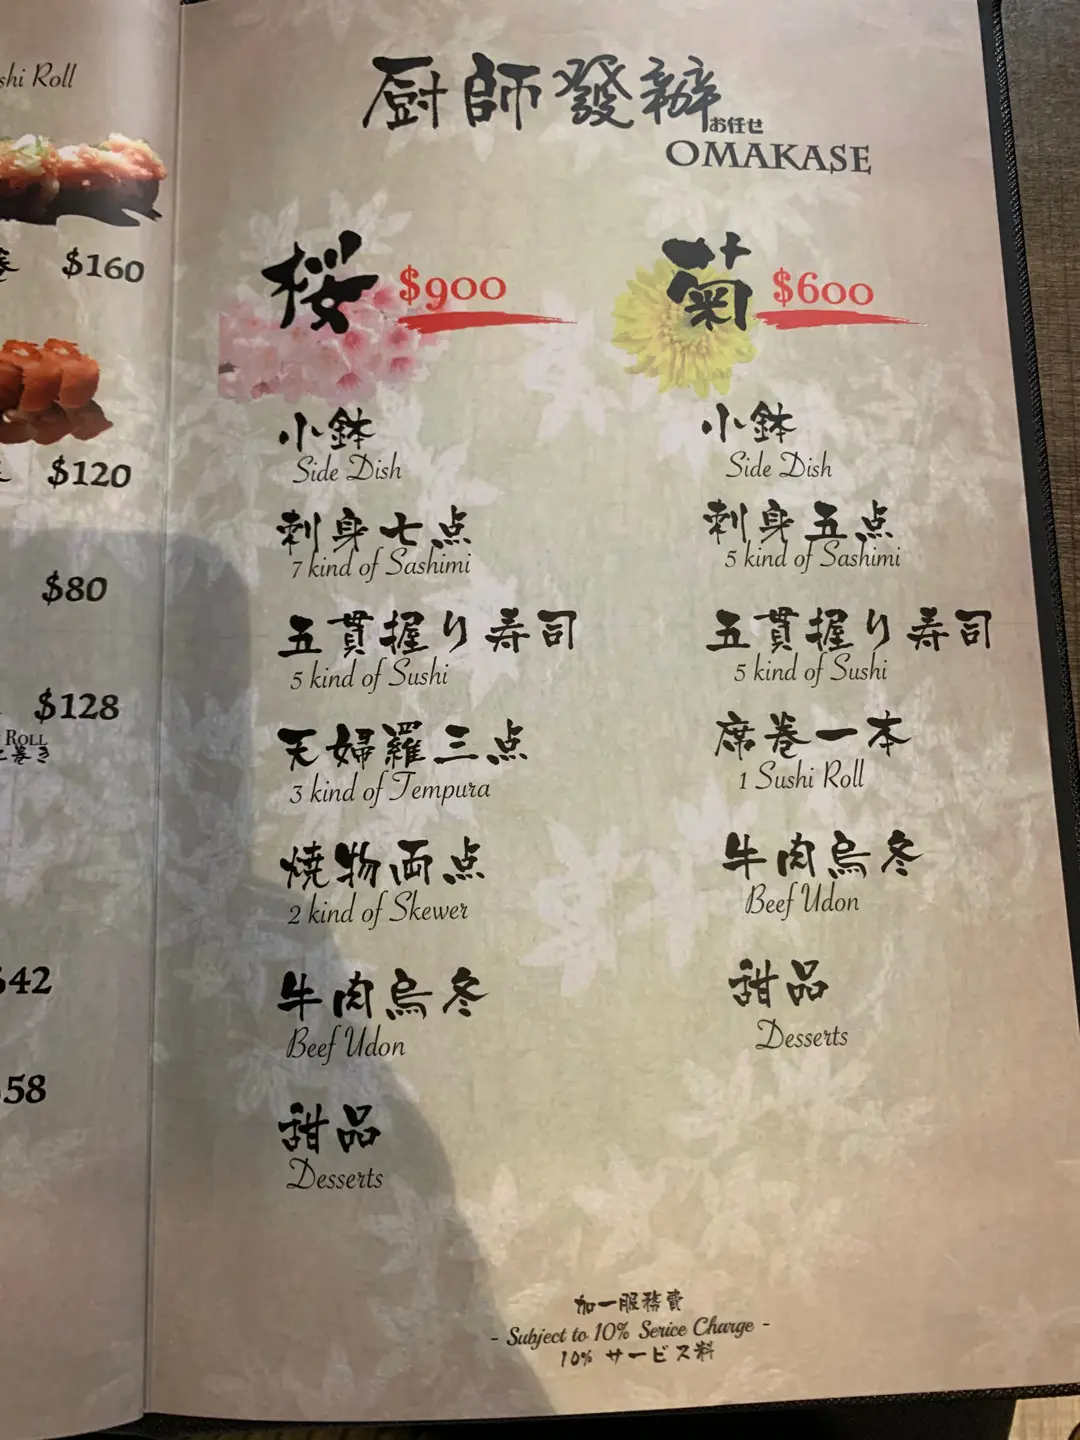 shi Roll
卷 $160
$120
$80
$128
Roll
巻き
42
58
厨師發辦
お任せ
OMAKASE
桜 $900
小鉢
Side Dish
刺身七点
7 kind of Sashimi
五貫握り寿司
5 kind of Sushi
天婦羅三点
3 kind of Tempura
焼物両点
2 kind of Skewer
牛肉烏冬
Beef Udon
甜品
Desserts
菊 $600
小鉢
Side Dish
刺身五点
5 kind of Sashimi
五貫握り寿司
5 kind of Sushi
席巻一本
1 Sushi Roll
牛肉烏冬
Beef Udon
甜品
Desserts
加一服務費
- Subject to 10% Serice Charge -
10% サービス料